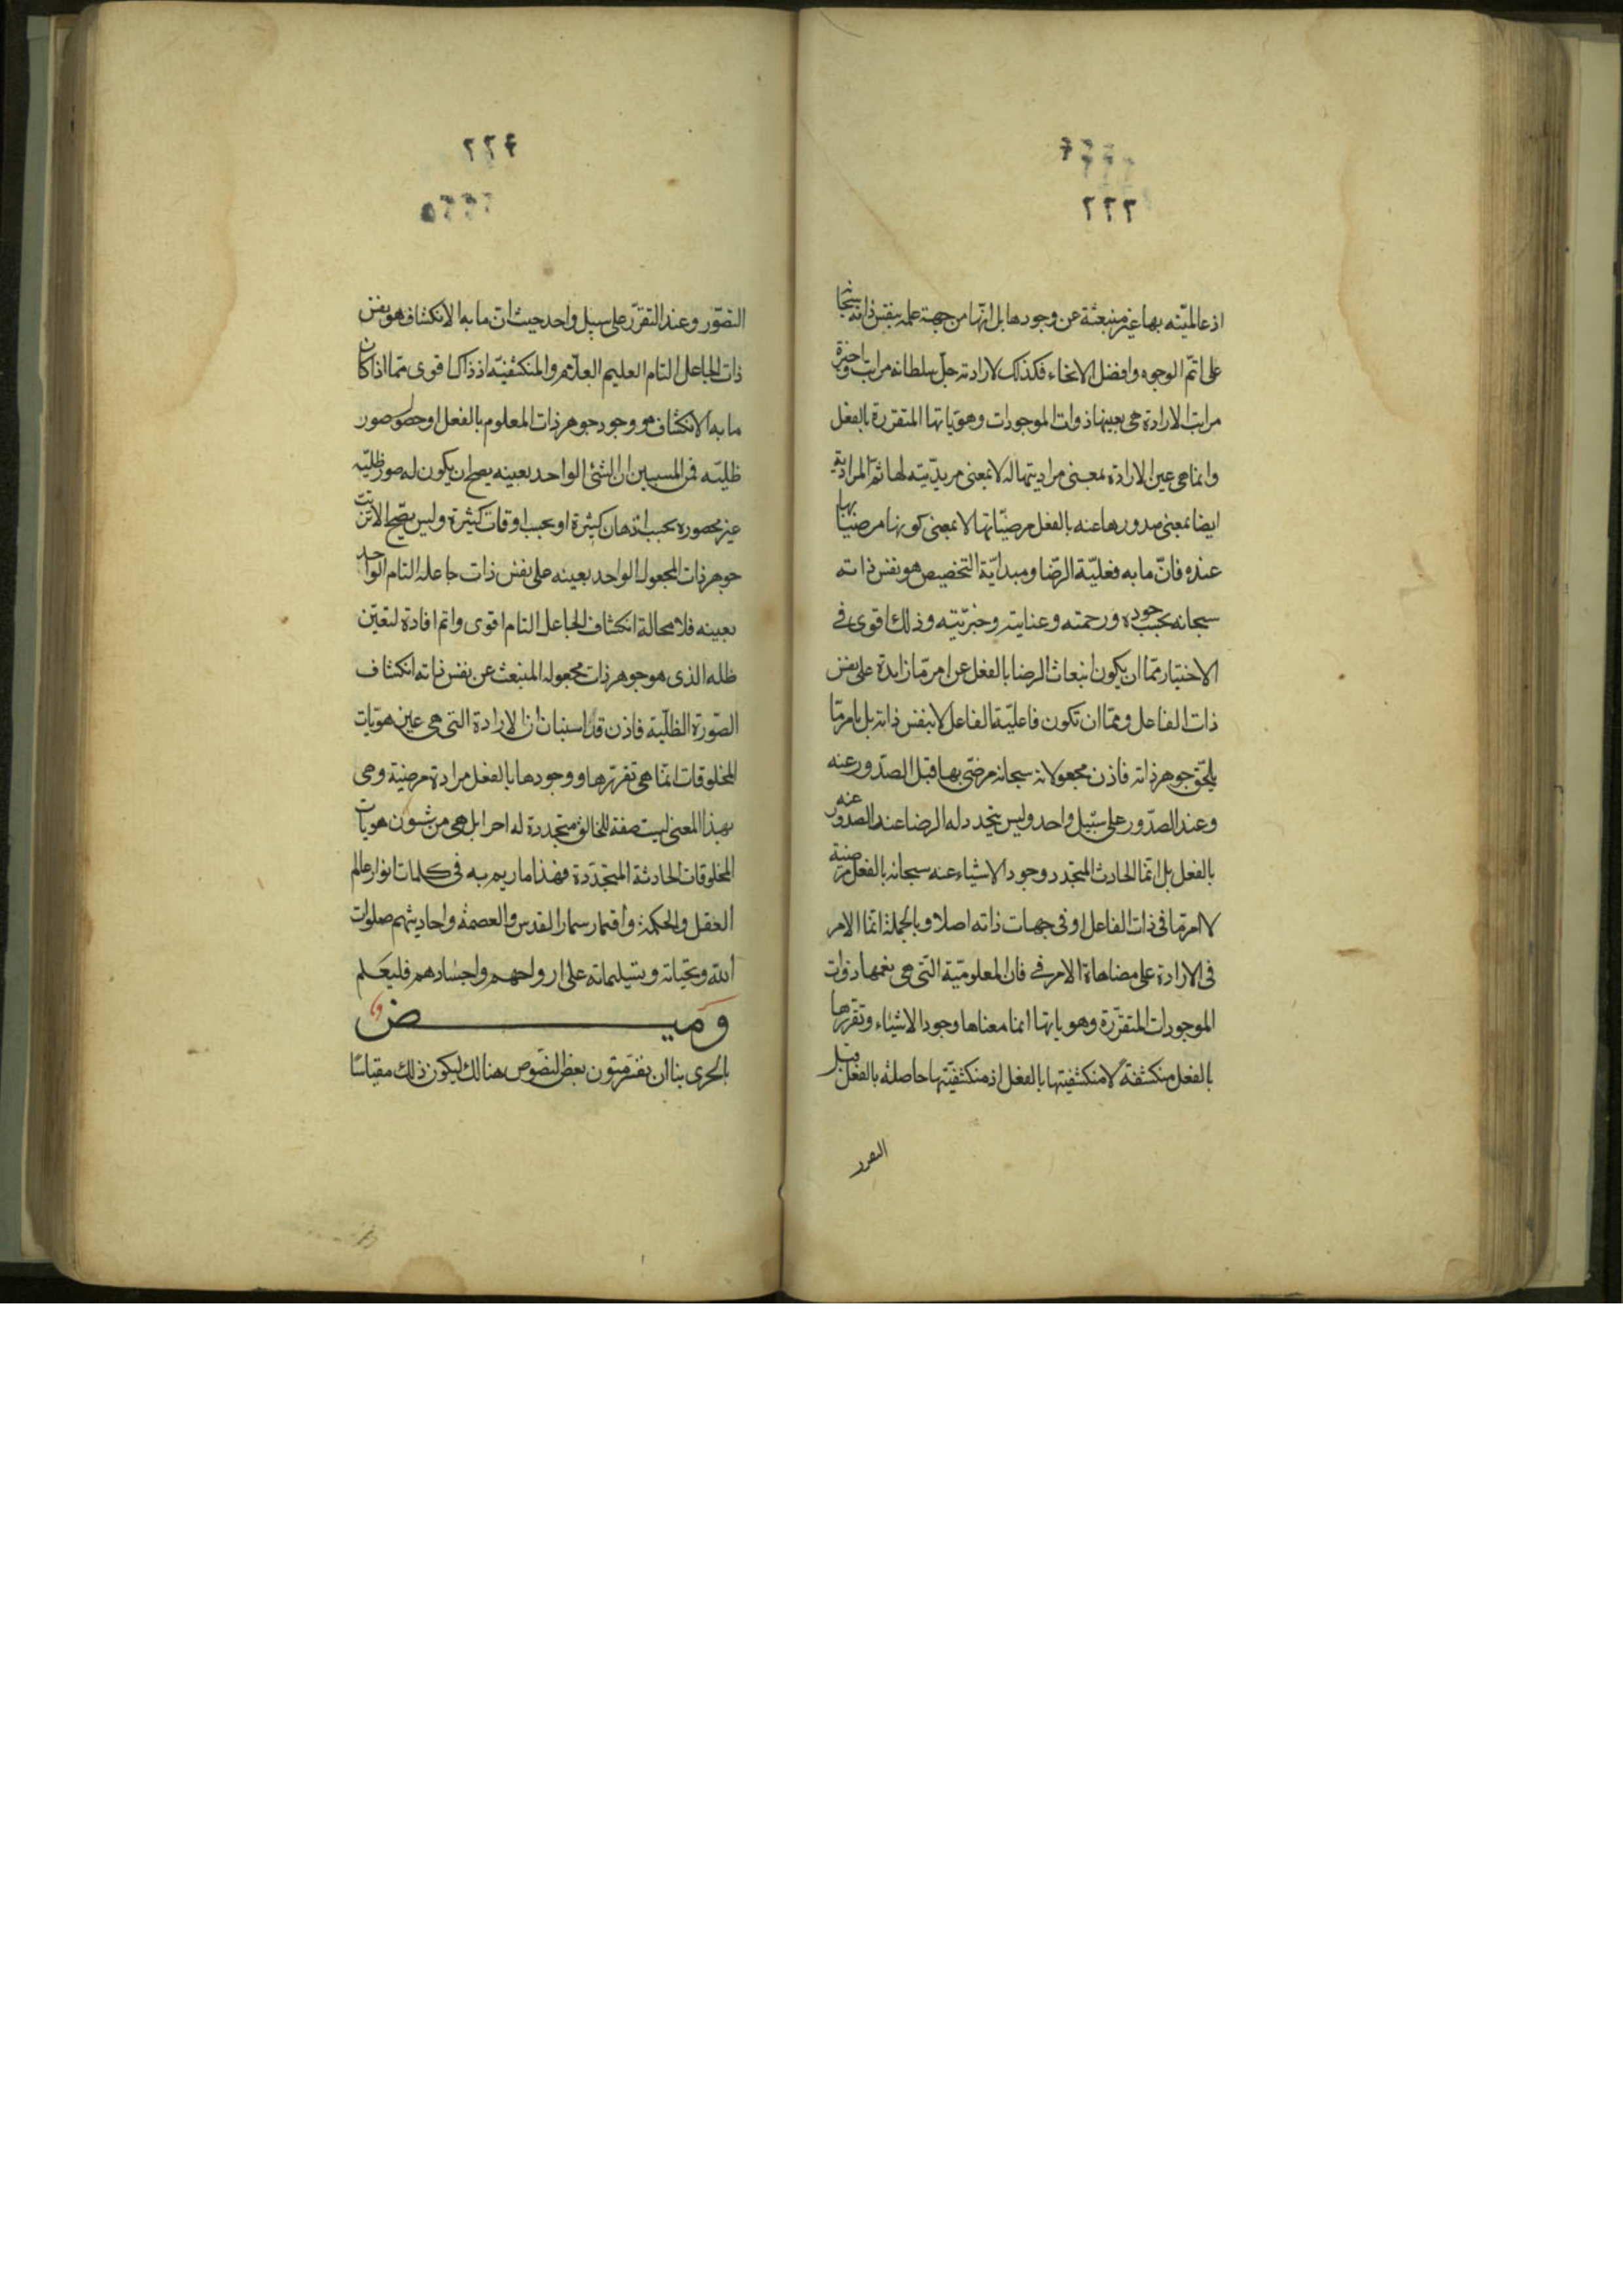 ٢٢٢
اذ عالميّته بها غير منبعثة عن وجودها بل انّها من جهة علمه بنفس ذاته سبحانه
على اتمّ الوجوه وافضل الانحاء فكذلك لارادته جلّ سلطانه مراتب واخيرة
مراتب الارادة هى بعينها ذوات الموجودات وهويّاتها المتقررة بالفعل
وانما هى عين الارادة بمعنى مراديتها له لا بمعنى مريديّته لها ثمّ المرادية
ايضا بمعنى صدورها عنه بالفعل مرضيّا بها لا بمعنى كونها مرضيّا بها
عنده فانّ ما به فعليّة الرضّا ومبدأيّة التخصيص هو نفس ذاته
سبحانه بحسب جوده ورحمته وعنايته وخيريّته وذلك اقوى فى
الاختيار ممّا ان يكون انبعاث الرضا بالفعل عن امر مّا زايدة على نفس
ذات الفاعل وممّا ان تكون فاعليّة الفاعل لا بنفس ذاته بل بامر مّا
يلحق جوهر ذاته فاذن مجعولاته سبحانه مرضىّ بها قبل الصدّور عنه
وعند الصدّور على سبيل واحد وليس يتجدد له الرضا عند الصدّور عنه
بالفعل بل انمّا الحادث المتجدد وجود الاشياء عنه سبحانه بالفعل مرضية
لا امر مّا فى ذات الفاعل او فى جهات ذاته اصلا وبالجملة انمّا الامر
فى الارادة على مضاهاة الامر فى فان المعلوميّة التى هى بعينها ذوات
الموجودات المتقرّرة وهوياتها انما معناها وجود الاشياء وتقررها
بالفعل منكشفة لا منكشفيتها بالفعل اذ منكشفيّتها حاصلة بالفعل قبل
التقرر
٢٢٤
التصوّر وعند التقرّر على سبيل واحد حيث انّ ما به الانكشاف هو نفس
ذات الجاعل التام العليم العلاّم والمنكشفيّة اذ ذاك اقوى ممّا اذا كان
ما به الانكشاف هو وجود جوهر ذات المعلوم بالفعل او حصول صور
ظليّة فمن المستبين ان الشئ الواحد بعينه يصح ان يكون له صور ظليّة
غير محصورة بحسب اذهان كثيرة او بحسب اوقات كثيرة وليس يصّح الا ترتب
جوهر ذات المجعول الواحد بعينه على نفس ذات جاعله التام الواحد
بعينه فلا محالة انكشاف الجاعل التام اقوى واتم افادة لتعيّن
ظله الذى هو جوهر ذات مجعوله المنبعث عن نفس ذاته انكشاف
الصّورة الظلّية فاذن قد استبان ان الارادة التى هى عين هويّات
المخلوقات انمّا هى تقررها ووجودها بالفعل مرادة مرضية وهى
بهذا المعنى ليست صفة للخالق متجددة له احرا بل هى من شئون هويات
المخلوقات الحادثة المتجدّدة فهذا ما ريم به فى كلمات انوار عالم
العقل والحكمة واقمار سماء القدس والعصمة واحاديثهم صلوات
الله وتحيّاته وتسليماته على ارواحهم واجسادهم فليعلم
وميض
بالحرى بنا ان نفسّر متون بعض النصّوص هنالك ليكون ذلك مقباسًا